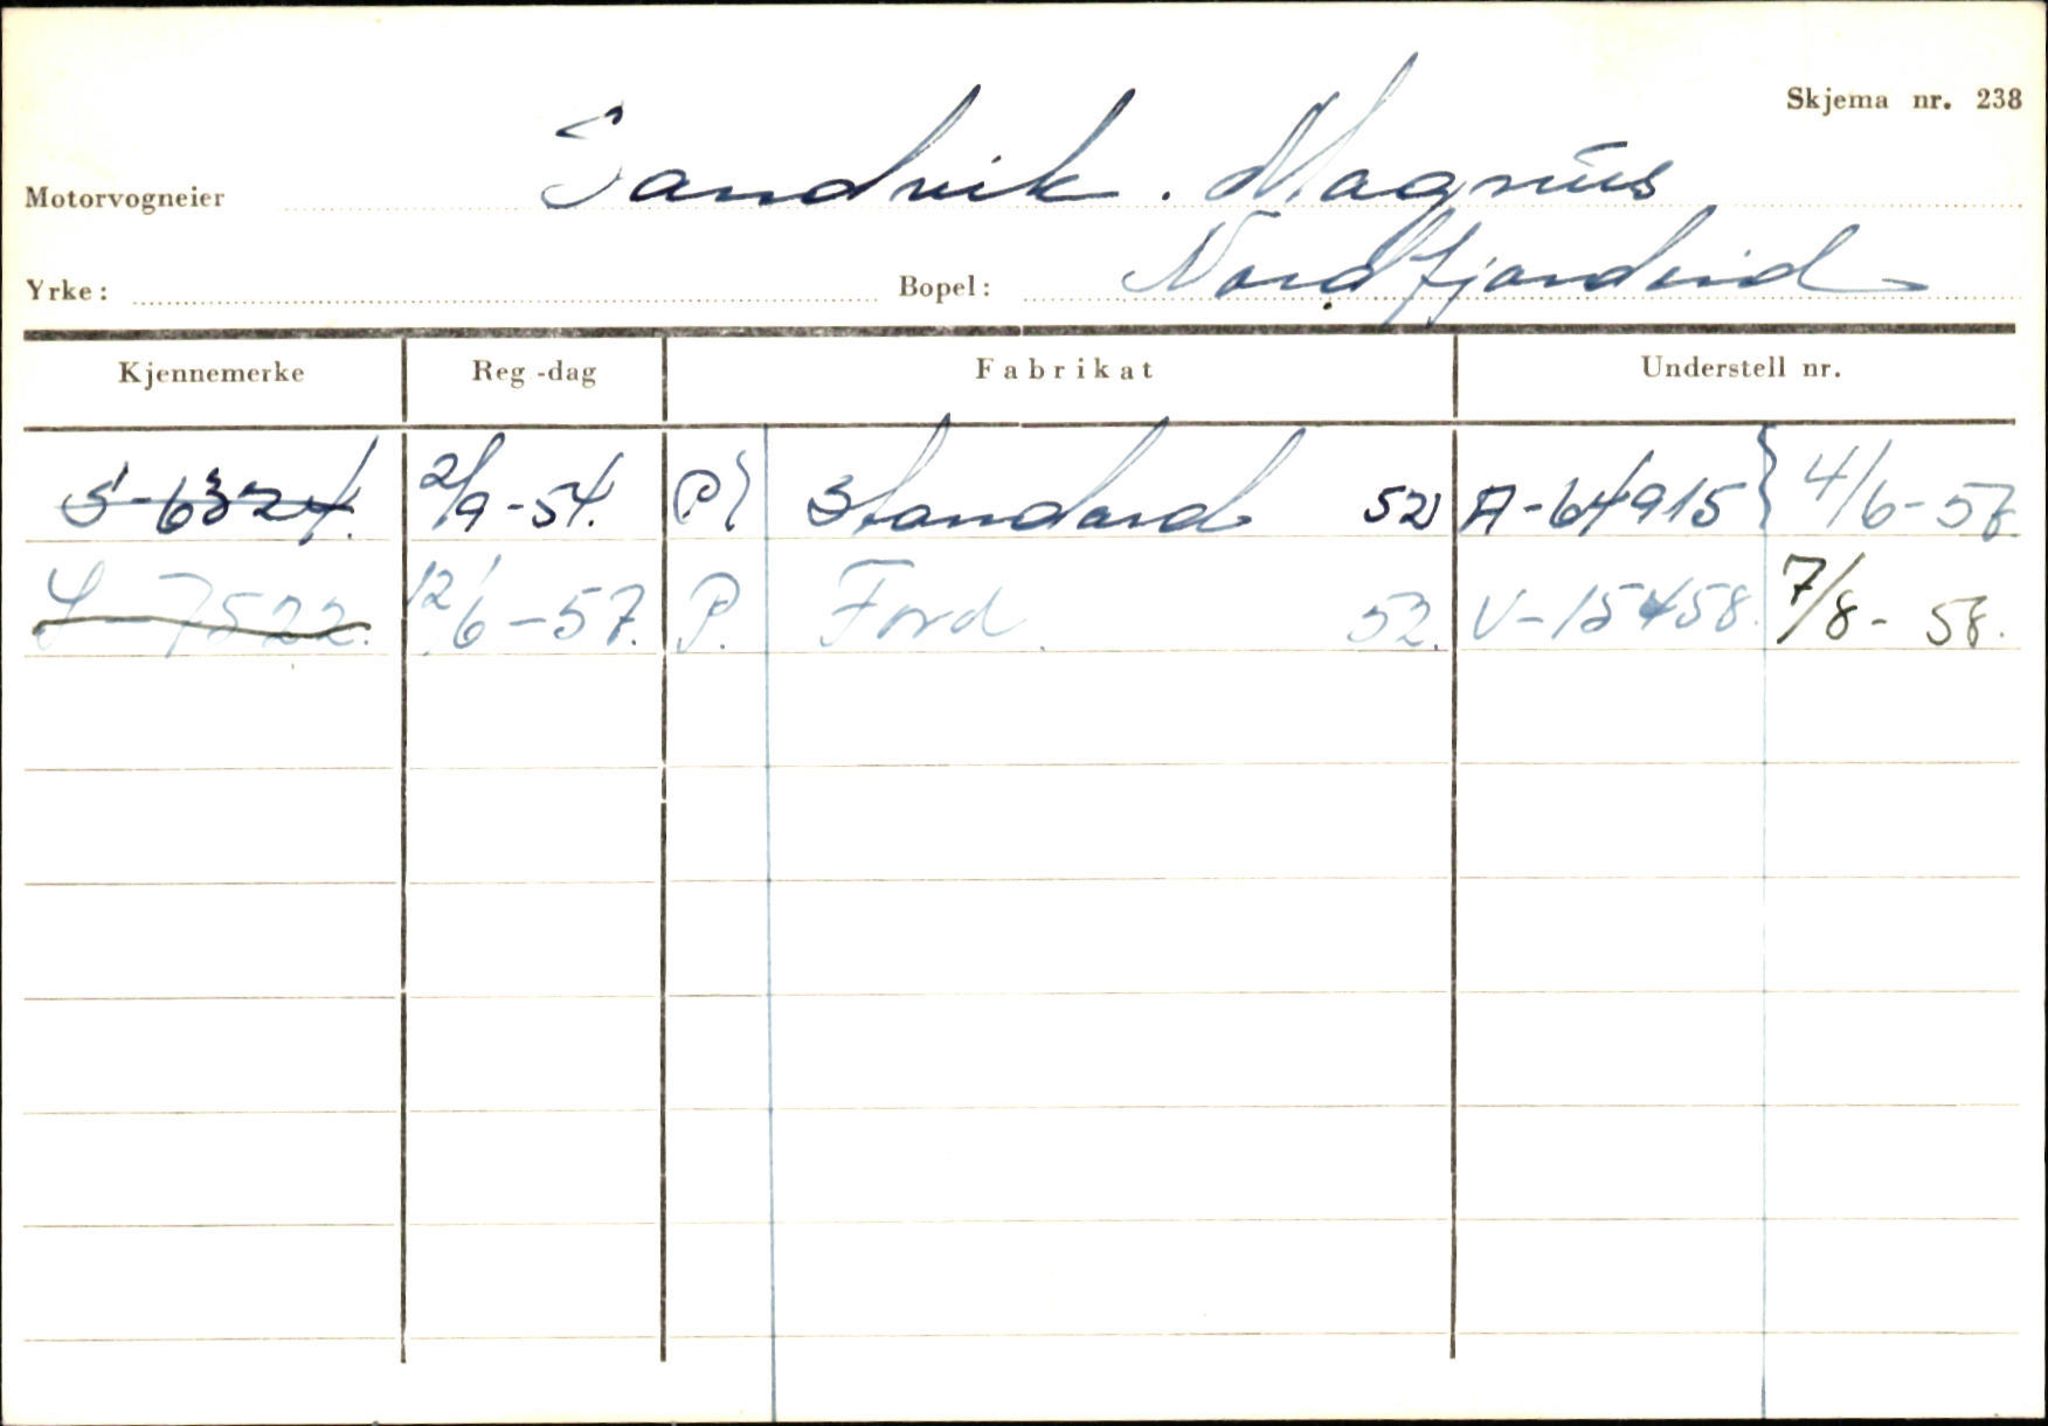 Skjema nr. 238
Motorvogneier Sandvik. Magnus
Yrke: Bopel: Nordfjordeid
Kjennemerke Reg-dag Fabrikat Understell nr.
S-6324. 2/9-54. P Standard 52 A-64915 4/6-57.
S-7522. 12/6-57. P. Ford. 52. V-15458. 7/8-58.